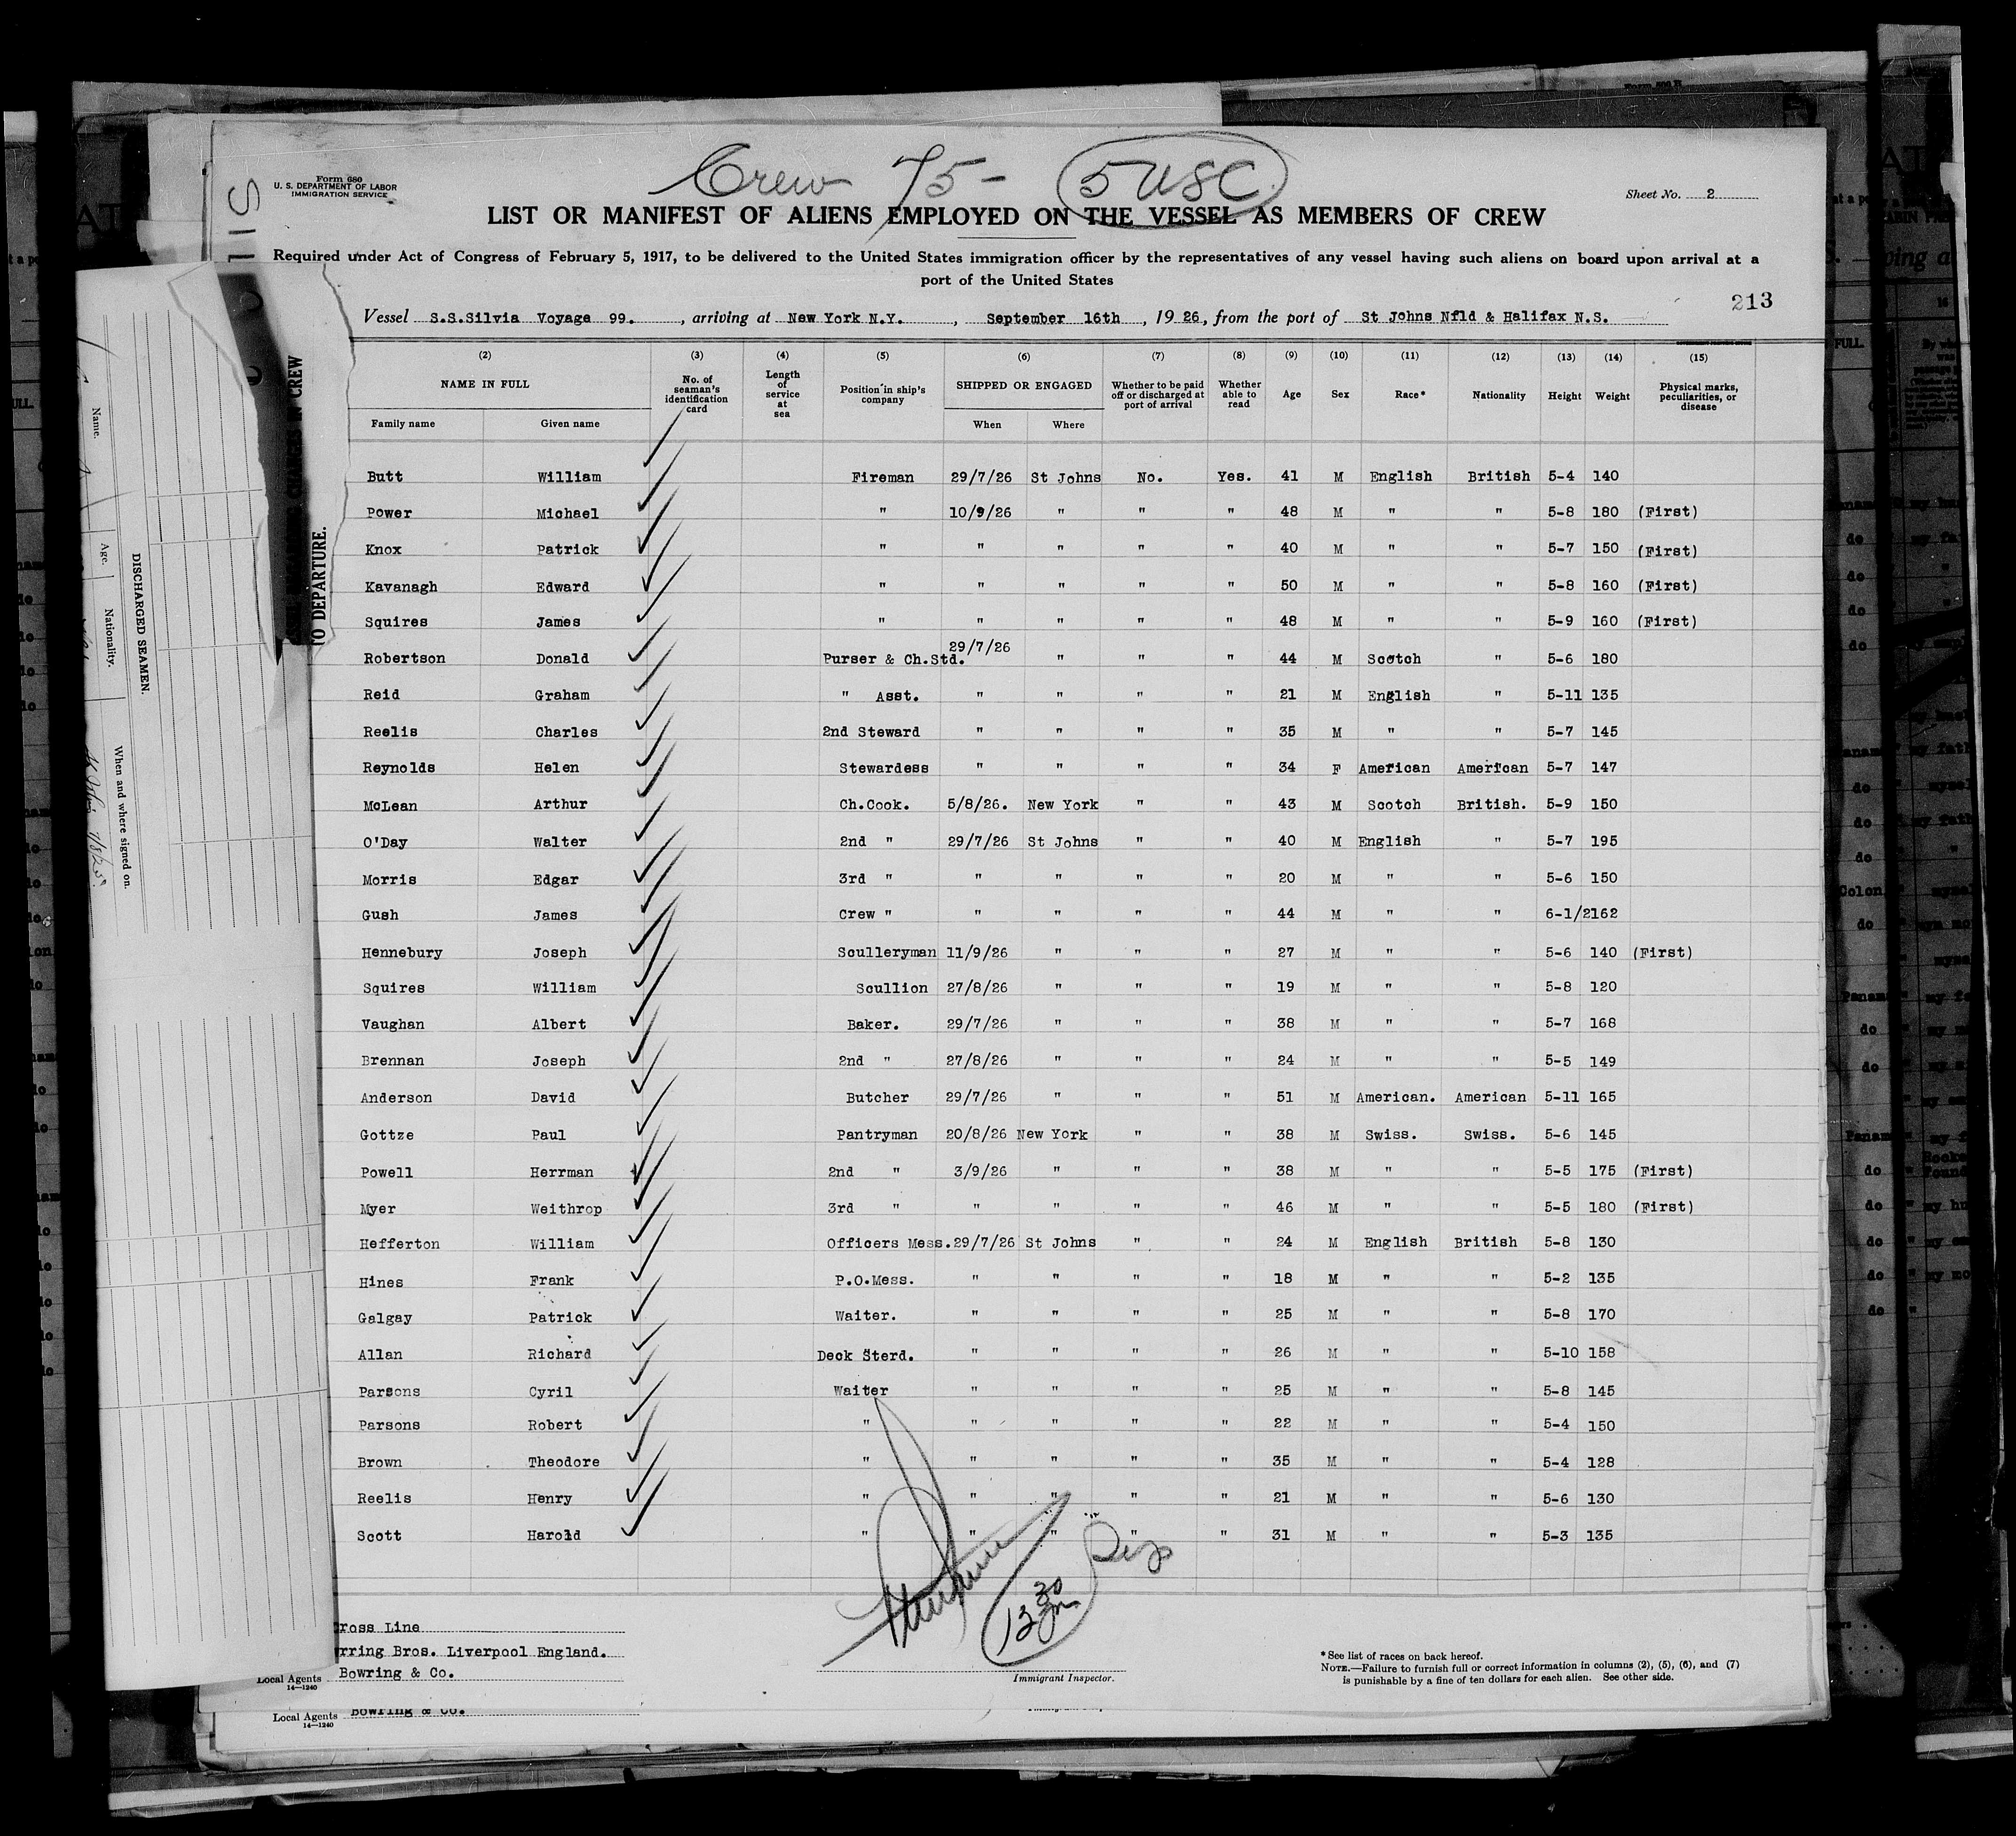 Crew 75 - 5 USC
Form 680
U. S. DEPARTMENT OF LABOR
IMMIGRATION SERVICE
Sheet No. 2
LIST OR MANIFEST OF ALIENS EMPLOYED ON THE VESSEL AS MEMBERS OF CREW
Required under Act of Congress of February 5, 1917, to be delivered to the United States immigration officer by the representatives of any vessel having such aliens on board upon arrival at a
port of the United States
213
Vessel S.S.Silvia Voyage 99. , arriving at New York N.Y. , September 16th , 1926, from the port of St Johns Nfld & Halifax N.S.
(2) (3) (4) (5) (6) (7) (8) (9) (10) (11) (12) (13) (14) (15)
NAME IN FULL No. of seaman's identification card Length of service at sea Position in ship's company SHIPPED OR ENGAGED Whether to be paid off or discharged at port of arrival Whether able to read Age Sex Race* Nationality Height Weight Physical marks, peculiarities, or disease
Family name Given name When Where
Butt William Fireman 29/7/26 St Johns No. Yes. 41 M English British 5-4 140
Power Michael " 10/9/26 " " " 48 M " " 5-8 180 (First)
Knox Patrick " " " " " 40 M " " 5-7 150 (First)
Kavanagh Edward " " " " " 50 M " " 5-8 160 (First)
Squires James " " " " " 48 M " " 5-9 160 (First)
Robertson Donald Purser & Ch.Std. 29/7/26 " " " 44 M Scotch " 5-6 180
Reid Graham " Asst. " " " " 21 M English " 5-11 135
Reelis Charles 2nd Steward " " " " 35 M " " 5-7 145
Reynolds Helen Stewardess " " " " 34 F American American 5-7 147
McLean Arthur Ch.Cook. 5/8/26. New York " " 43 M Scotch British. 5-9 150
O'Day Walter 2nd " 29/7/26 St Johns " " 40 M English " 5-7 195
Morris Edgar 3rd " " " " " 20 M " " 5-6 150
Gush James Crew " " " " " 44 M " " 6-1/2 162
Hennebury Joseph Sculleryman 11/9/26 " " " 27 M " " 5-6 140 (First)
Squires William Scullion 27/8/26 " " " 19 M " " 5-8 120
Vaughan Albert Baker. 29/7/26 " " " 38 M " " 5-7 168
Brennan Joseph 2nd " 27/8/26 " " " 24 M " " 5-5 149
Anderson David Butcher 29/7/26 " " " 51 M American. American 5-11 165
Gottze Paul Pantryman 20/8/26 New York " " 38 M Swiss. Swiss. 5-6 145
Powell Herrman 2nd " 3/9/26 " " " 38 M " " 5-5 175 (First)
Myer Weithrop 3rd " " " " " 46 M " " 5-5 180 (First)
Hefferton William Officers Mess. 29/7/26 St Johns " " 24 M English British 5-8 130
Hines Frank P.O.Mess. " " " " 18 M " " 5-2 135
Galgay Patrick Waiter. " " " " 25 M " " 5-8 170
Allan Richard Deck Sterd. " " " " 26 M " " 5-10 158
Parsons Cyril Waiter " " " " 25 M " " 5-8 145
Parsons Robert " " " " " 22 M " " 5-4 150
Brown Theodore " " " " " 35 M " " 5-4 128
Reelis Henry " " " " " 21 M " " 5-6 130
Scott Harold " " " " " 31 M " " 5-3 135
12 30
ross Line
rring Bros. Liverpool England.
Local Agents Bowring & Co.
14—1240
Immigrant Inspector.
* See list of races on back hereof.
NOTE.—Failure to furnish full or correct information in columns (2), (5), (6), and (7)
is punishable by a fine of ten dollars for each alien. See other side.
Local Agents Bowring & Co.
14—1240
DISCHARGED SEAMEN.
Name. Age. Nationality. When and where signed on.
CHANGES IN CREW
TO DEPARTURE.